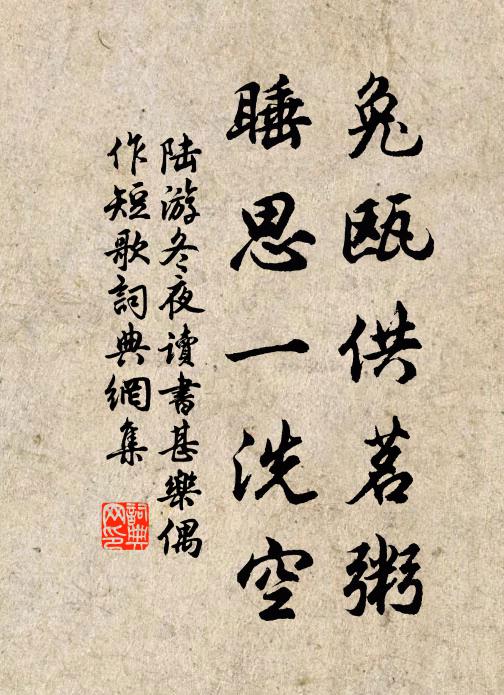 兔瓯供茗粥
睡思一洗空
陆游冬夜读书甚乐偶
作短歌词典网集
词典
网印